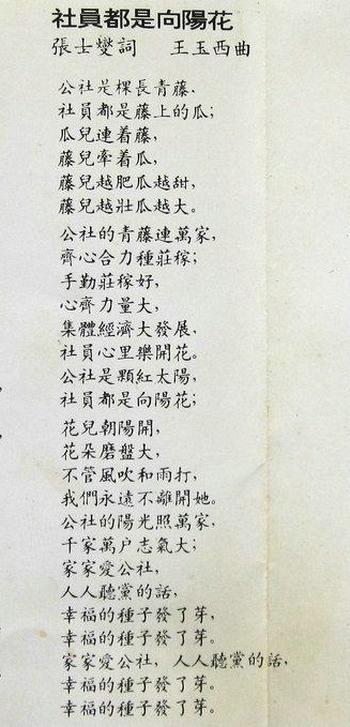 社員都是向陽花
張士燮詞　王玉西曲
公社是棵長青藤，
社員都是藤上的瓜；
瓜兒連着藤，
藤兒牽着瓜，
藤兒越肥瓜越甜，
藤兒越壯瓜越大。
公社的青藤連萬家，
齊心合力種莊稼；
手勤莊稼好，
心齊力量大，
集體經濟大發展，
社員心里樂開花。
公社是顆紅太陽，
社員都是向陽花；
花兒朝陽開，
花朵磨盤大，
不管風吹和雨打，
我們永遠不離開她。
公社的陽光照萬家，
千家萬户志氣大；
家家愛公社，
人人聽黨的話，
幸福的種子發了芽，
幸福的種子發了芽。
家家愛公社，人人聽黨的話，
幸福的種子發了芽。
幸福的種子發了芽。